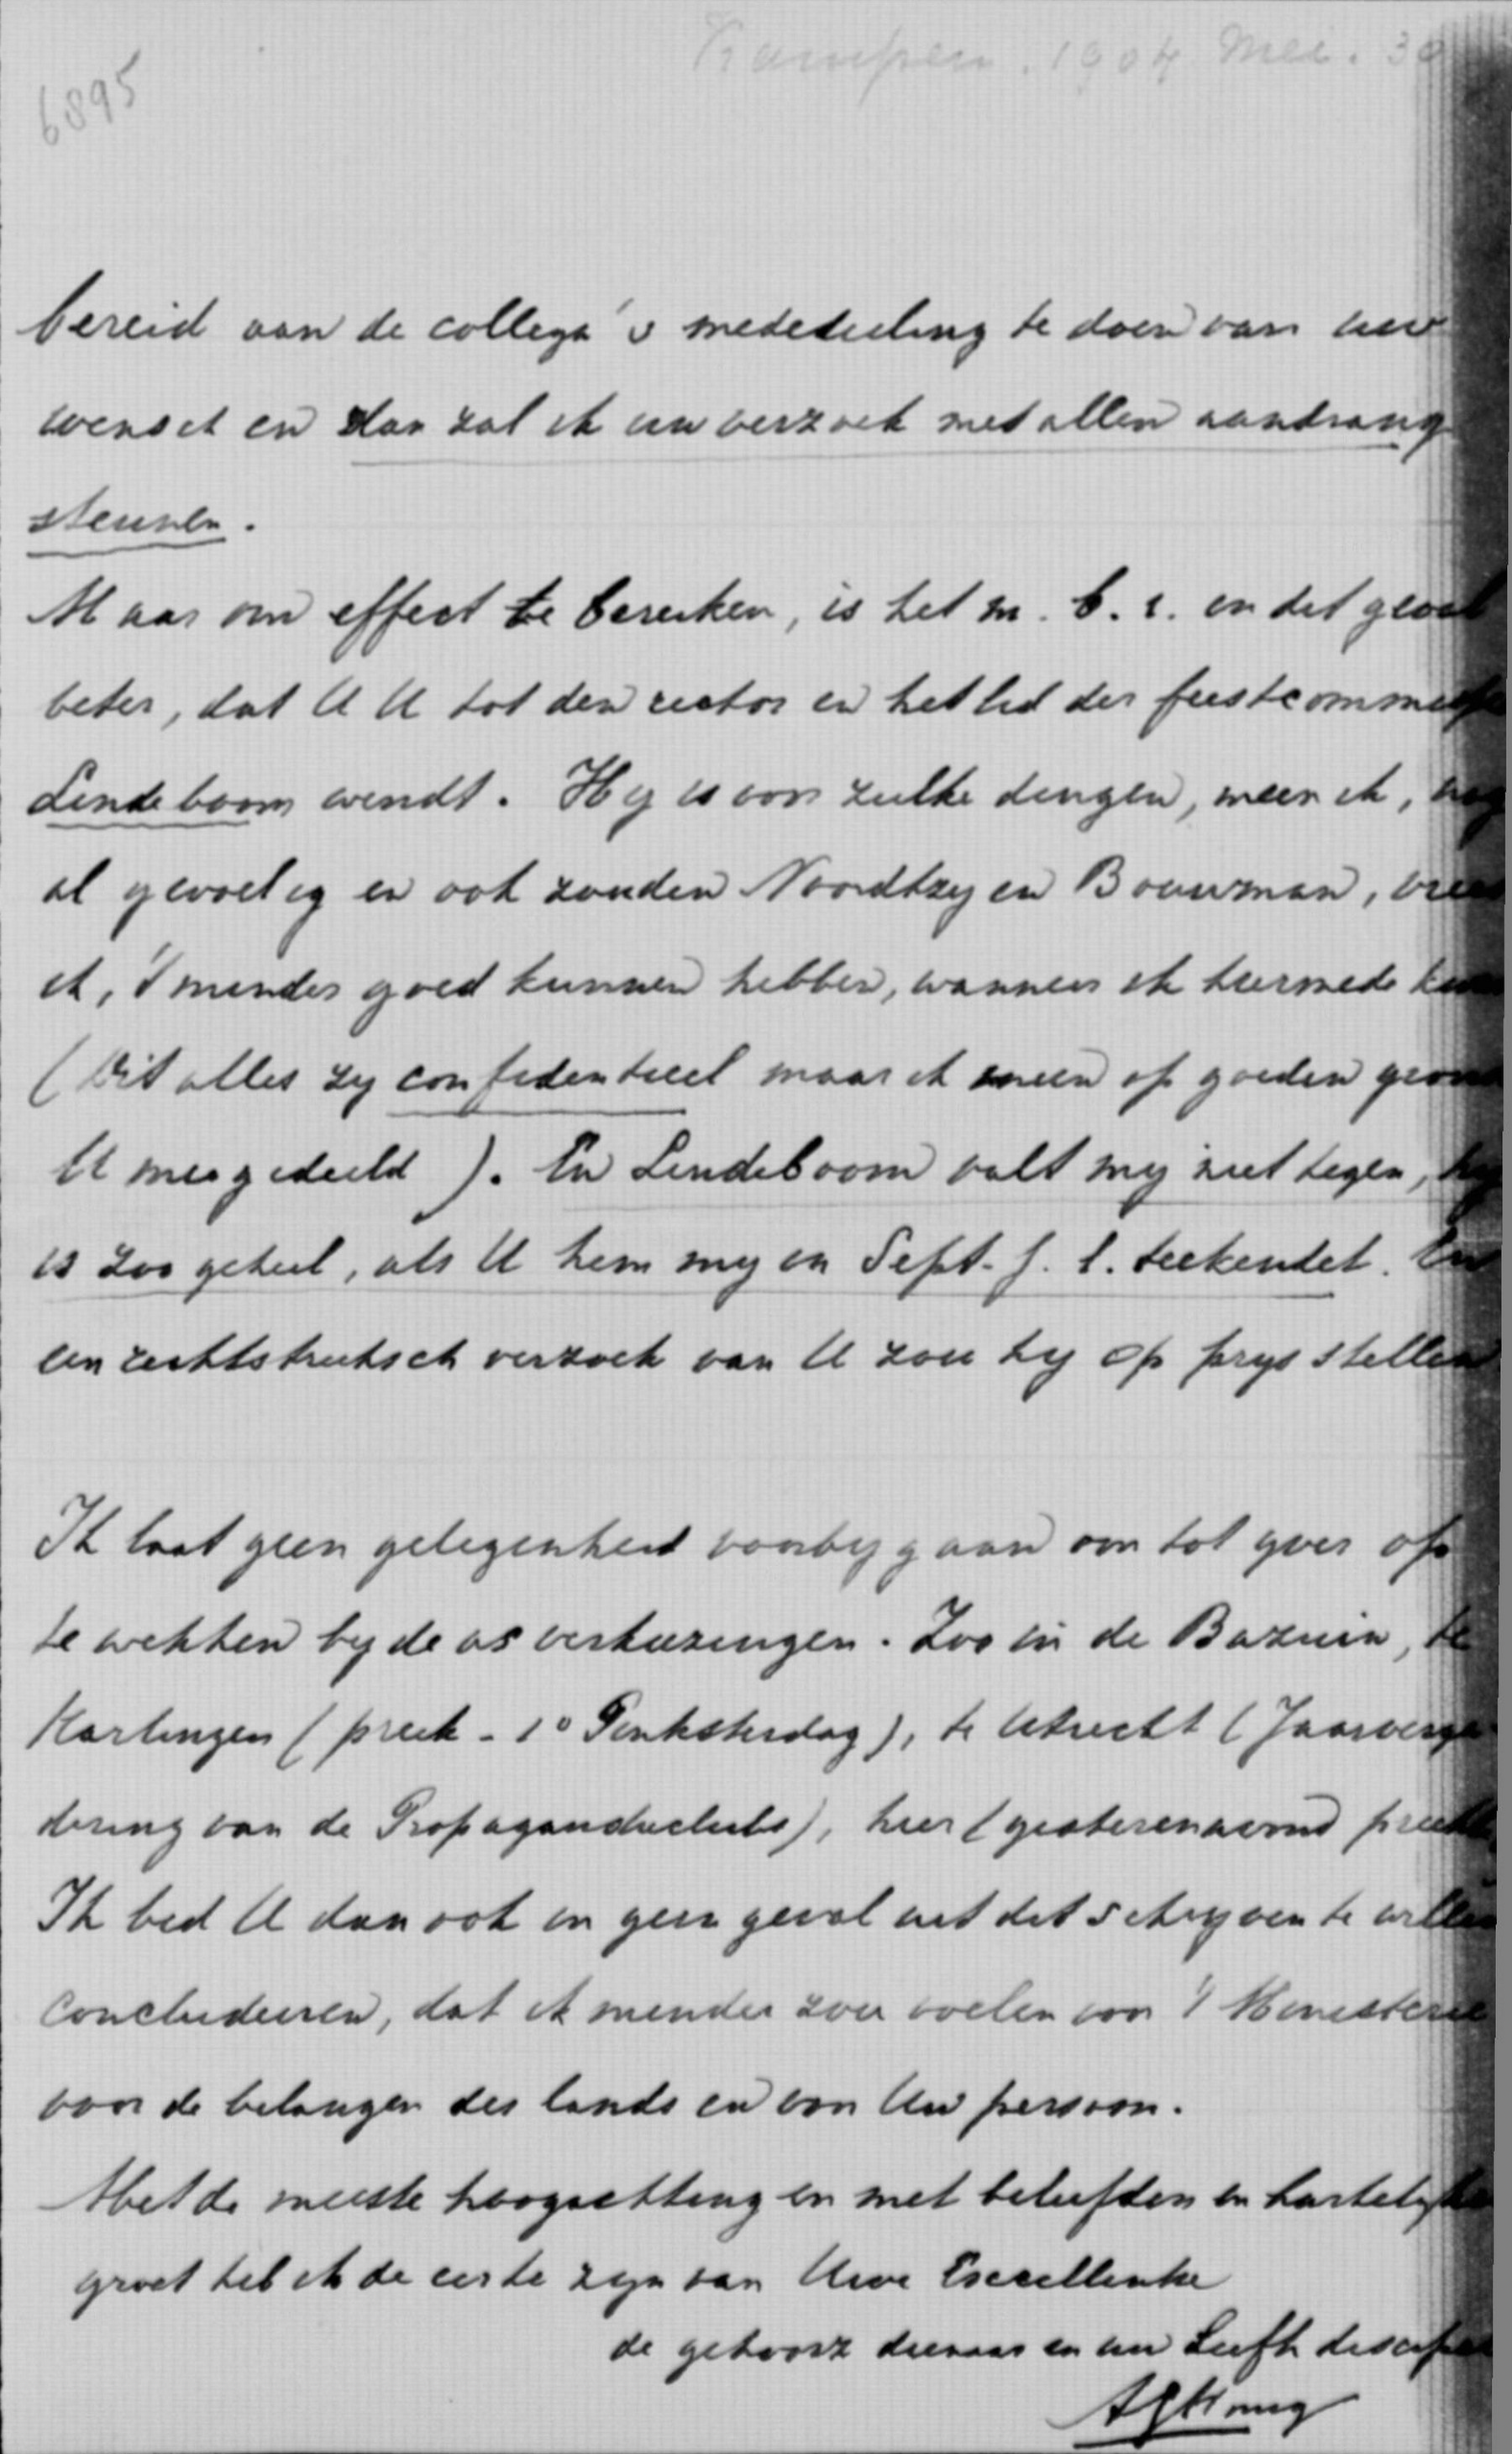 Kampen. 1904 Mei. 30
6895
bereid aan de collega's mededeeling te doen van uw
wensch en dan zal ik uw verzoek met allen aandrang
steunen.
Maar om effect te bereiken, is het m. b. i. in dit geval
beter, dat U U tot den rector en het lid der feestcommissie
Lindeboom wendt. Hij is voor zulke dingen, meen ik, nog
al gevoelig en ook zouden Noordtzij en Bouwman, vrees
ik, 't minder goed kunnen hebben, wanneer ik hiermede kwam
(Dit alles zij confidentieel maar ik meen op goeden grond
U meegedeeld). En Lindeboom valt mij niet tegen, hij
is zoo geheel, als U hem mij in Sept. j. l. teekendet. En
een rechtstreeksch verzoek van U zou hij op prijs stellen
Ik laat geen gelegenheid voorbijgaan om tot ijver op
te wekken bij de as verkiezingen. Zoo in de Bazuin, te
Harlingen (preek - 1e Pinksterdag), te Utrecht (Jaarverga-
dering van de Propagandaclubs), hier (gisterenavond preek
Ik bid U dan ook in geen geval uit dit schrijven te willen
concludeeren, dat ik minder zou voelen voor 't Ministerie
voor de belangen des lands en voor Uw persoon.
Met de meeste hoogachting en met beleefden en hartelijken
groet heb ik de eer te zijn van Uwe Excellentie
de gehoorz dienaar en uw liefh discipel
AGHonig